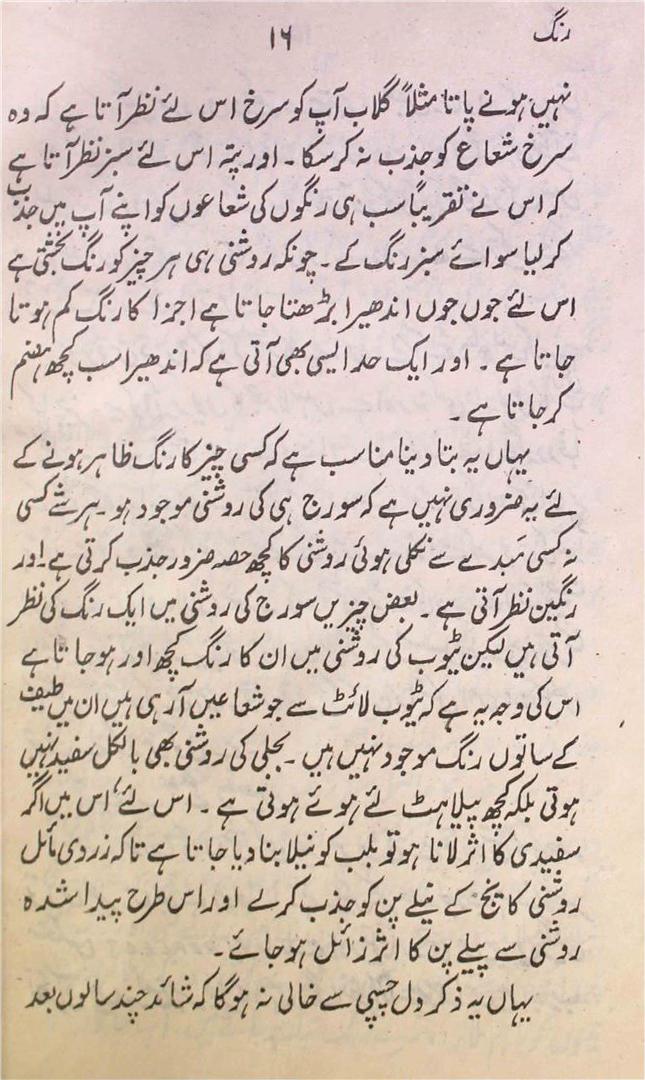 رنگ
۱۶
نہیں ہونے پاتا مثلاً گلاب آپ کو سرخ اس لئے نظر آتا ہے کہ وہ
سرخ شعاع کو جذب نہ کر سکا۔ اور پتہ اس لئے سبز نظر آتا ہے
کہ اس نے تقریباً سب ہی رنگوں کی شعاعوں کو اپنے آپ میں جذب
کر لیا سوائے سبز رنگ کے۔ چونکہ روشنی ہی ہر چیز کو رنگ بخشتی ہے
اس لئے جوں جوں اندھیرا بڑھتا جاتا ہے اجزا کا رنگ کم ہوتا
جاتا ہے۔ اور ایک حد ایسی بھی آتی ہے کہ اندھیرا سب کچھ ہضم
کر جاتا ہے۔
یہاں یہ بتا دینا مناسب ہے کہ کسی چیز کا رنگ ظاہر ہونے کے
لئے یہ ضروری نہیں ہے کہ سورج ہی کی روشنی موجود ہو۔ ہر شے کسی
نہ کسی مَبدے سے نکلی ہوئی روشنی کا کچھ حصہ ضرور جذب کرتی ہے۔ اور
رنگین نظر آتی ہے۔ بعض چیزیں سورج کی روشنی میں ایک رنگ کی نظر
آتی ہیں لیکن ٹیوب کی روشنی میں ان کا رنگ کچھ اور ہو جاتا ہے
اس کی وجہ یہ ہے کہ ٹیوب لائٹ سے جو شعاعیں آ رہی ہیں ان میں طیف
کے ساتوں رنگ موجود نہیں ہیں۔ بجلی کی روشنی بھی بالکل سفید نہیں
ہوتی بلکہ کچھ پیلاہٹ لئے ہوئے ہوتی ہے۔ اس لئے، اس میں اگر
سفیدی کا اثر لانا ہو تو بلب کو نیلا بنا دیا جاتا ہے تاکہ زردی مائل
روشنی کانچ کے نیلے پن کو جذب کر لے اور اس طرح پیدا شدہ
روشنی سے پیلے پن کا اثر زائل ہو جائے۔
یہاں یہ ذکر دل چسپی سے خالی نہ ہو گا کہ شائد چند سالوں بعد